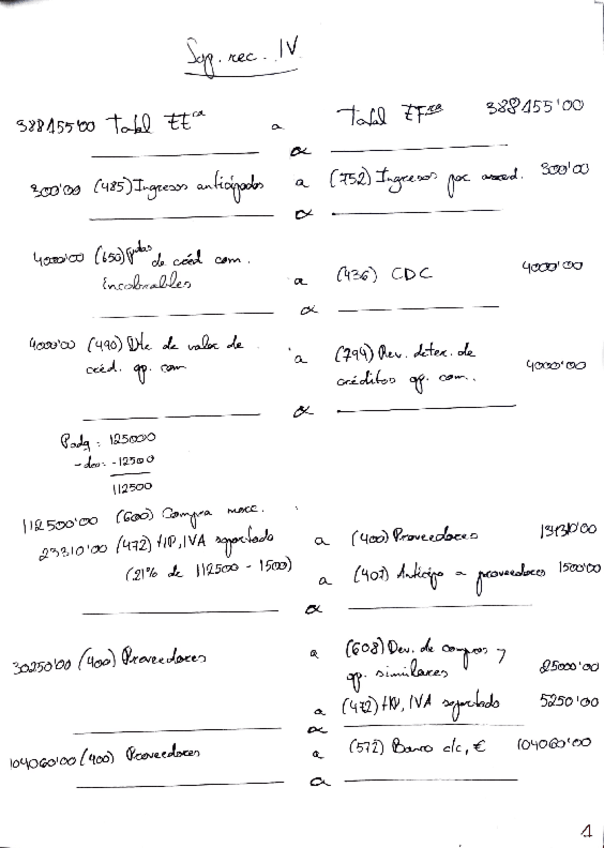 Sup. rec. IV
388455'00 Total EE^ca a Total EF^ra 388455'00
a
300'00 (485) Ingresos anticipados a (752) Ingresos por arrend. 300'00
a
4000'00 (650) Pdas de créd com.
incobrables a (436) CDC 4000'00
a
4000'00 (490) Dt. de valor de a (794) Rev. deter. de
créd. op. com créditos op. com. 4000'00
a
Padq: 125000
- dco: -12500
112500
112500'00 (600) Compra merc.
23310'00 (472) HP, IVA soportado a (400) Proveedores 134310'00
(21% de 112500 - 1500) a (407) Anticipo a proveedores 1500'00
a
30250'00 (400) Proveedores a (608) Dev. de compras y
op. similares 25000'00
a (472) HP, IVA soportado 5250'00
a
104060'00 (400) Proveedores a (572) Banco c/c, € 104060'00
a
1